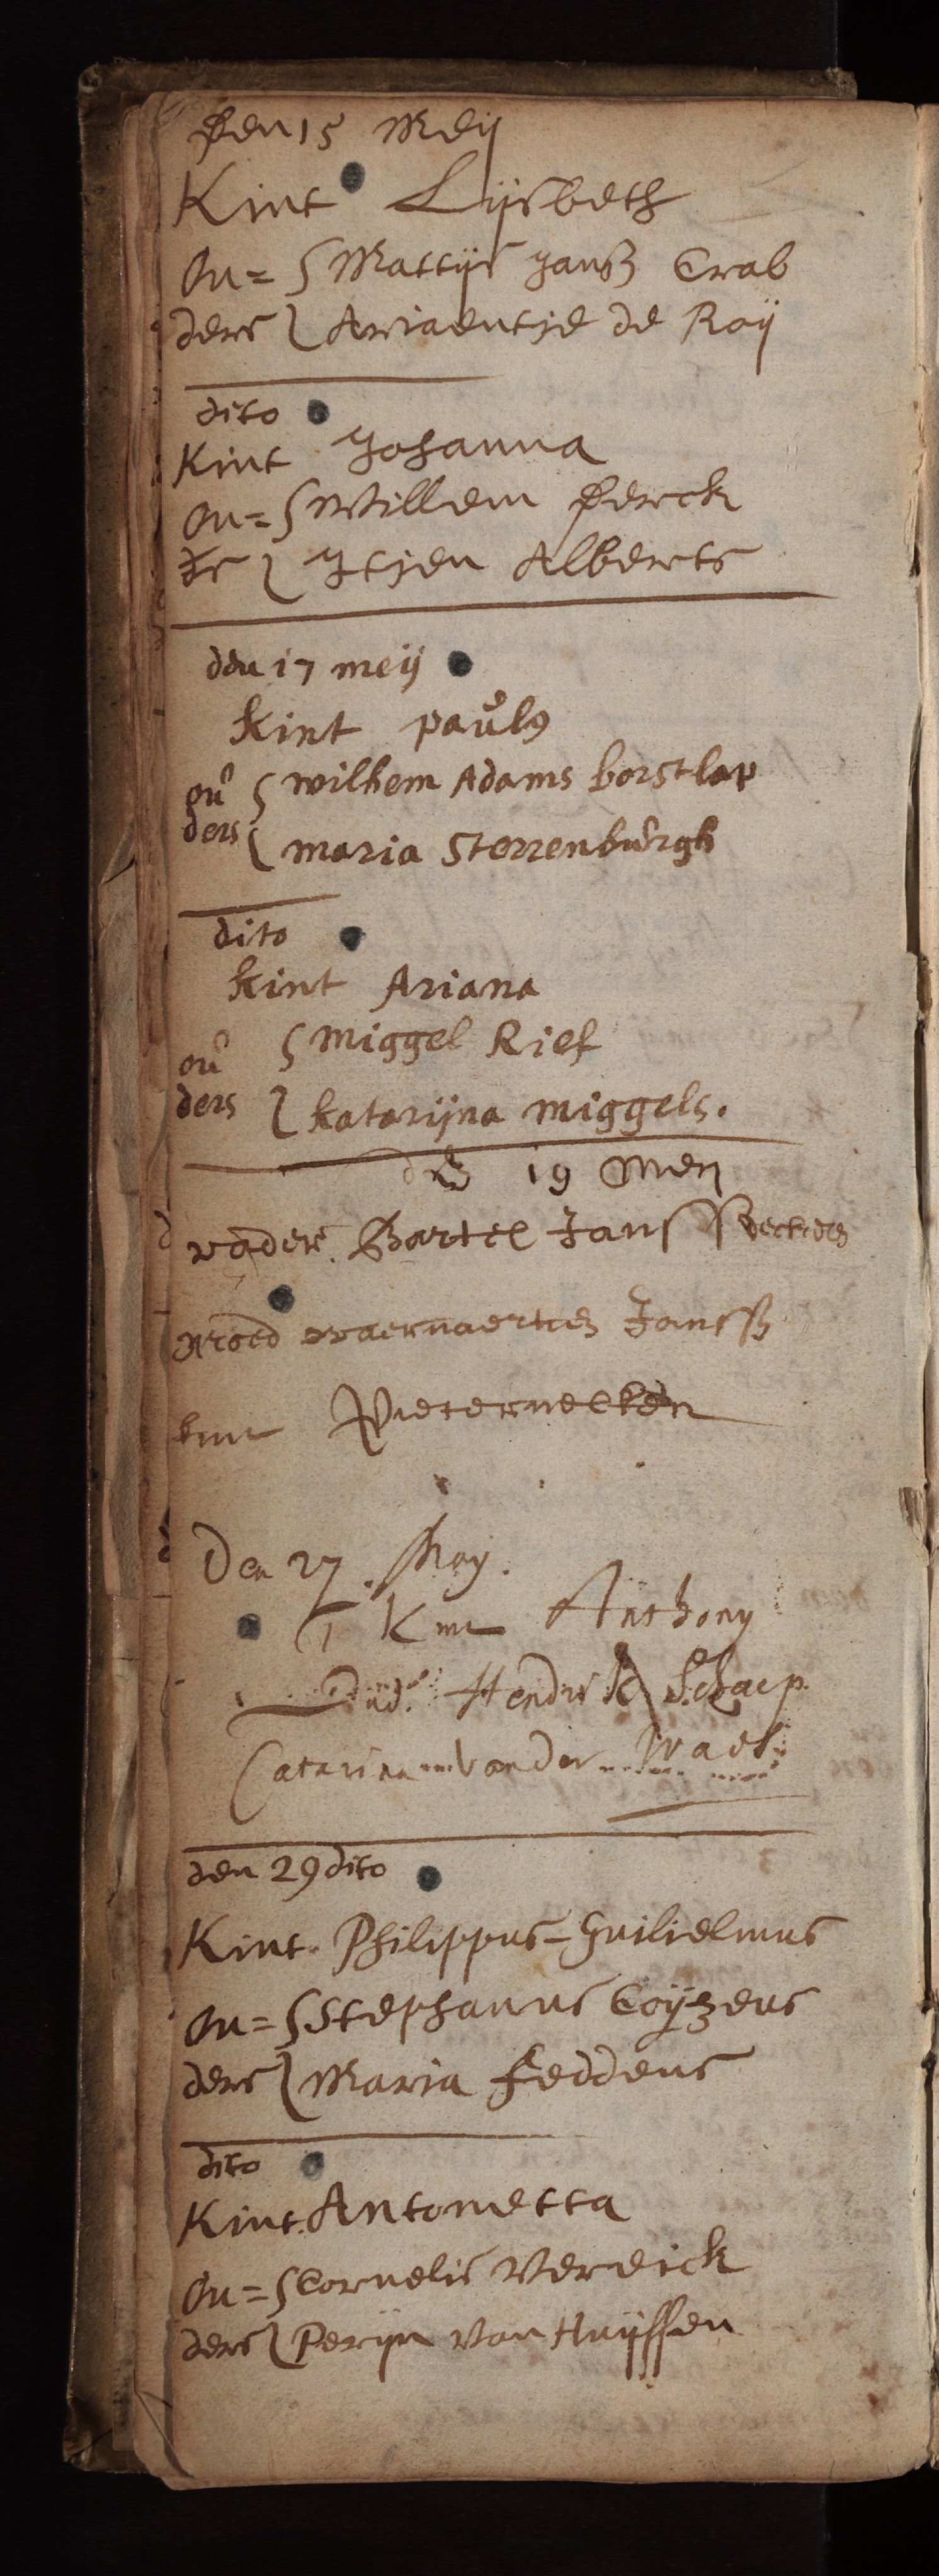 Den 15 Meij
Kint Lijsbeth
Ou= Mattijs Janß Crab
ders Ariaentje de Roij
dito
Kint Johanna
Ou= Willem Derck
drs Itjen Alberts
den 17 meij
kint paŭlus
oŭ wilhem Adams borstlap
ders maria Sterrenbŭrgh
dito
kint Ariana
oŭ Miggel Rief
ders katarijna miggels.
den 19 Meij
vader Bartel Jans
moed Janss
kint Pieternelken
Den 27. May.
T Kint Anthony
Oud. Hendrik Schaep.
Catarina vander Wael
den 29 dito
Kint Philippus-Guilielmus
Ou= Stephanus Coijzens
ders Maria Feddens
dito
Kint. Antonetta
Ou= Cornelis Verdick
ders Perijn van Huijssen